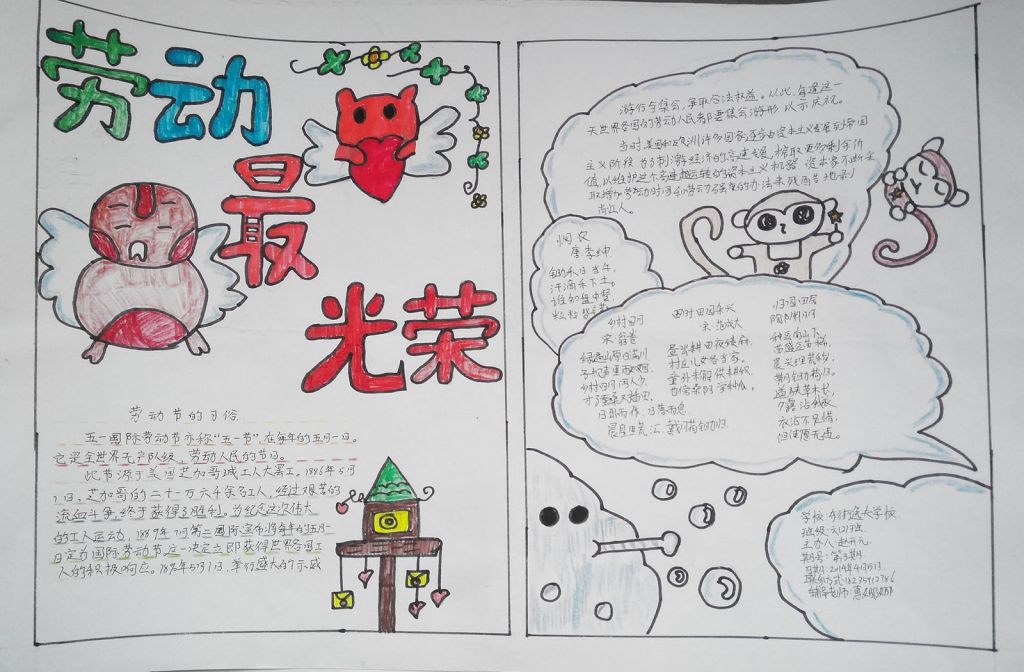 劳动
最
光荣
劳动节的习俗
五一国际劳动节亦称"五一节",在每年的五月一日。
它是全世界无产阶级、劳动人民的节日。
此节源于美国芝加哥城工人大罢工。1886年5月
1日,芝加哥的二十一万六千余名工人,经过艰苦的
流血斗争,终于获得了胜利,为纪念这次伟大
的工人运动,1889年7月第二国际宣布将每年的五月一
日定为国际劳动节。这一决定立即获得世界各国工
人的积极响应。1890年5月1日,举行盛大的示威
游行与集会,争取合法权益。从此,每逢这一
天世界各国的劳动人民都要集会游行 以示庆祝。
当时,美国和欧洲许多国家逐步由资本主义发展到帝国
主义阶段 为了刺激经济的高速发展,榨取更多剩余价
值,以维护这个高速运转的资本主义机器,资本家不断采
取增加劳动时间和劳动强度的办法来残酷地剥
削工人。
悯农
唐 李绅
锄禾日当午,
汗滴禾下土。
谁知盘中餐,
粒粒皆辛苦
乡村四月
宋 翁卷
绿遍山原白满川
子规声里雨如烟
乡村四月闲人少
才了蚕桑又插田
日出而作,日落而息
晨兴理荒秽 戴月荷锄归.
四时田园杂兴
宋 范成大
昼出耕田夜绩麻,
村庄儿女各当家。
童孙未解供耕织,
也傍桑阴学种瓜。
归园田居
陶渊明
种豆南山下,
草盛豆苗稀。
晨兴理荒秽,
带月荷锄归。
道狭草木长,
夕露沾我衣
衣沾不足惜,
但使愿无违。
班级:六(2)班
期号:第3期